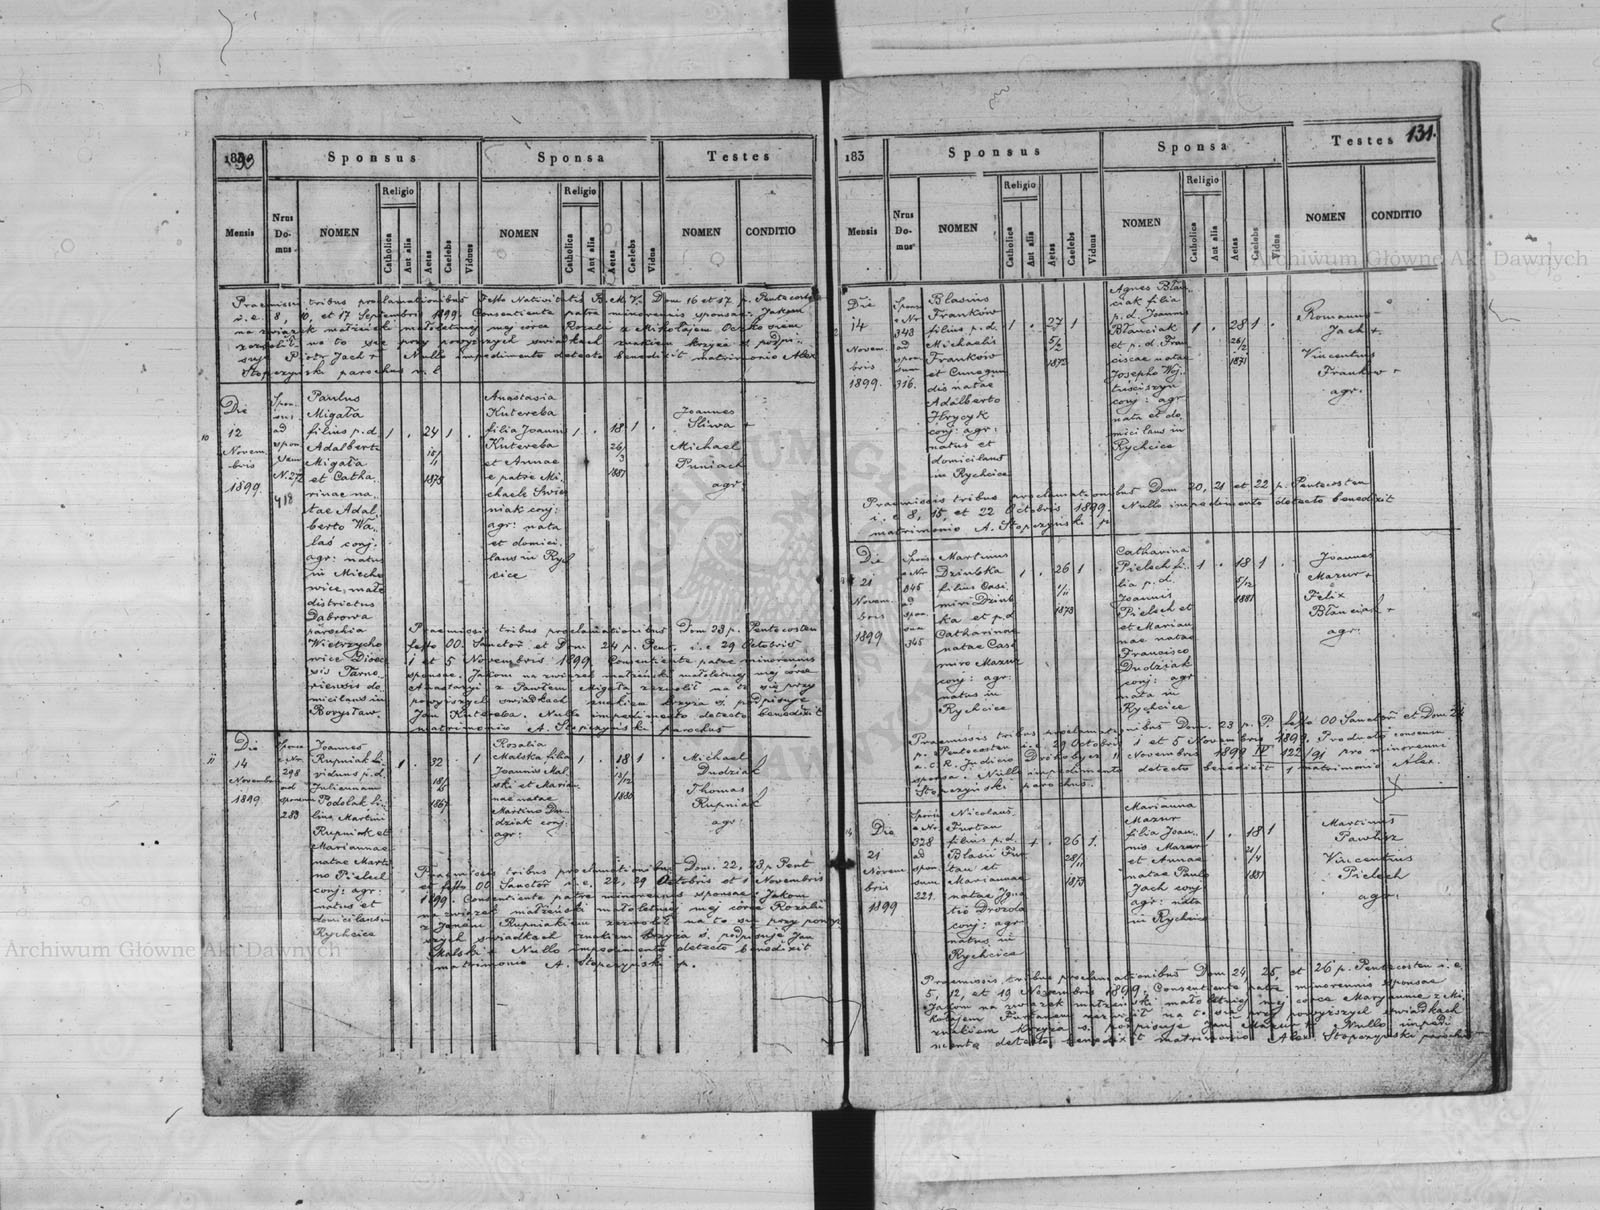 1899
Sponsus
Sponsa
Testes
Mensis
Nrus Do-mus
NOMEN
Religio
Catholica
Aut alia
Aetas
Caelebs
Viduus
NOMEN
Religio
Catholica
Aut alia
Aetas
Caelebs
Vidua
NOMEN
CONDITIO
Praemissis tribus proclamationibus Festo Nativitatis B. M. V. Dom 16 et 17 p. Pentecosten
i. e. 8, 10, et 17 Septembris 1899. Consentiente patre minorennis sponsae: Jakom
na związek małżeński małoletniej mej córce Rozalii z Mikołajem
zezwolił na to się przy powyższych świadkach znakiem krzyża ś. podpi-
suje Piotr Jach + Nullo impedimento detecto benedixit matrimonio Alex
Stopczyński parochus
10
Die
12
Novem
bris
1899
Spon
sus
ad
spon
sam
N. 272
418
Paulus
Migała
filius p. d.
Adalberti
Migała
et Catha
rinae na
tae Adal
berto Wa
laś conj.
agr: natus
in Miecho
wice małe
districtus
Dąbrowa
parochia
Wietrzycho
wice Dioec
sis Tarno
viensis do
micilians in
Borysław
1
24
1
1873
Anastasia
Kutereba
filia Joannis
Kutereba
et Annae
e patre Mi
chaele Świer
niak conj:
agr: nata
et domici
lians in Ry
cice
1
18
1
26/3
1881
Joannes
Śliwa +
Michael
Puniach
agr:
Praemissis tribus proclamationibus Dom 23 p. Pentecosten
festo OO. Sanctor et Dom 24 p. Pent. i. e 29 Octobris
1 et 5 Novembris 1899. Consentiente patre minorennis
sponsae. Jakom na związek małżeński małoletniej mej córce
Anastazyi z Pawłem Migała zezwolił na to się przy
powyższych świadkach znakiem krzyża ś. podpisuje
Jan Kutereba. Nullo impedimento detecto benedixit
matrimonio A. Stopczyński parochus
11
Die
14
Novembris
1899
Sponsi
e Nr
298
ad
sponsam
283
Joannes
Rupniak
viduus p. d.
Juliannam
Podolak fi
lius Martini
Rupniak et
Mariannae
natae Marti
no Pielech
conj: agr:
natus et
domicilians in
Rychcice
1
32
1
1867
Rosalia
Malska filia
Joannis Mal
ski et Marian
nae natae
Martino Du
dziak conj:
agr:
1
18
1
1880
Michael
Dudziak
Thomas
Rupniak
agr:
Praemissis tribus proclamationibus Dom. 22, 23 p. Pent
et festo OO Sanctor i. e. 22, 29 Octobris et 1 Novembris
1899. Consentiente patre minorennis sponsae: Jakom
na związek małżeński małoletniej mej córce Rozalii
z Janem Rupniakiem zezwolił na to się przy powyż
szych świadkach znakiem krzyża ś. podpisuje Jan
Malski + Nullo impedimento detecto benedixit
matrimonio A. Stopczyński p.
131.
183
Sponsus
Sponsa
Testes
Mensis
Nrus Do-mus
NOMEN
Religio
Catholica
Aut alia
Aetas
Caelebs
Viduus
NOMEN
Religio
Catholica
Aut alia
Aetas
Caelebs
Vidua
NOMEN
CONDITIO
Die
14
Novem
bris
1899.
Spons
e Nr
343
ad
spon
sam
316.
Blasius
Franków
filius p. d.
Michaelis
Franków
et Cunegun
dis natae
Adalberto
Hrycyk
conj: agr:
natus et
domicilians
in Rychcice
1
27
1
5/2
1872
Agnes Błan
ciak filia
p. d. Joannis
Błanciak
et p. d. Fran
ciscae natae
Josepho Woj
conj: agr
nata et do
micilians in
Rychcice
1
28
1
1871
Romanus
Jach +
Vincentius
Franków +
agr.
Praemissis tribus proclamationibus Dom. 20, 21 et 22 p. Pentecosten
i. e 8, 15, et 22 Octobris 1899. Nullo impedimento detecto benedixit
matrimonio A. Stopczyński p.
Die
21
Novem
bris
1899
Spons
e Nr
345
ad
spon
sam
345
Martinus
Dziubka
filius Casi
miri Dziub
ka et p. d
Catharinae
natae Casi
miro Mazur
conj: agr:
natus in
Rychcice
1
26
1
1/11
1873
Catharina
Pielech fi
lia p. d.
Joannis
Pielech et
Marian
nae natae
Francisco
Dudziak
conj: agr
nata in
Rychcice
1
18
1
5/12
1881
Joannes
Mazur +
Felix
Błanciak +
agr:
Praemissis tribus proclamationibus Dom. 23 p. P. festo OO Sanctor et Dom 24
p. Pentecosten i. e 29 Octobris 1 et 5 Novembris 1899. Producto consensu
a. c. k. Judicio Drohobycz Novembris 1899 IV 122/91 pro minorenni
sponsa. Nullo impedimento detecto benedixit matrimonio Alex.
Stopczyński parochus.
14
Die
21
Novem
bris
1899
Sponsi
e Nr
328
ad
spon
sam
221
Nicolaus
Furtan
filius p. d.
Blasii Fur
tan et
Mariannae
natae Igna
tio Drozda
conj: agr
natus in
Rychcice
1
26
1.
28/11
1873
Marianna
Mazur
filia Joan
nis Mazur
et Annae
natae Paulo
Jach conj
agr: nata
in Rychcice
1
18
1
21/4
1881
Martinus
Pawlisz
Vincentius
Pielech
agr:
Praemissis tribus proclamationibus Dom 24, 25, et 26 p. Pentecosten i. e.
5, 12, et 19 Novembris 1899. Consentiente patre minorennis sponsae
Jakom na związek małżeński małoletniej mej córce Maryannie z Mi
kołajem Furtanem zezwolił na to się przy powyższych świadkach
znakiem krzyża ś. podpisuje Jan Mazur + Nullo impedi
mento detecto benedixit matrimonio Alex Stopczyński parochus
Archiwum Główne Akt Dawnych
Archiwum Główne Akt Dawnych